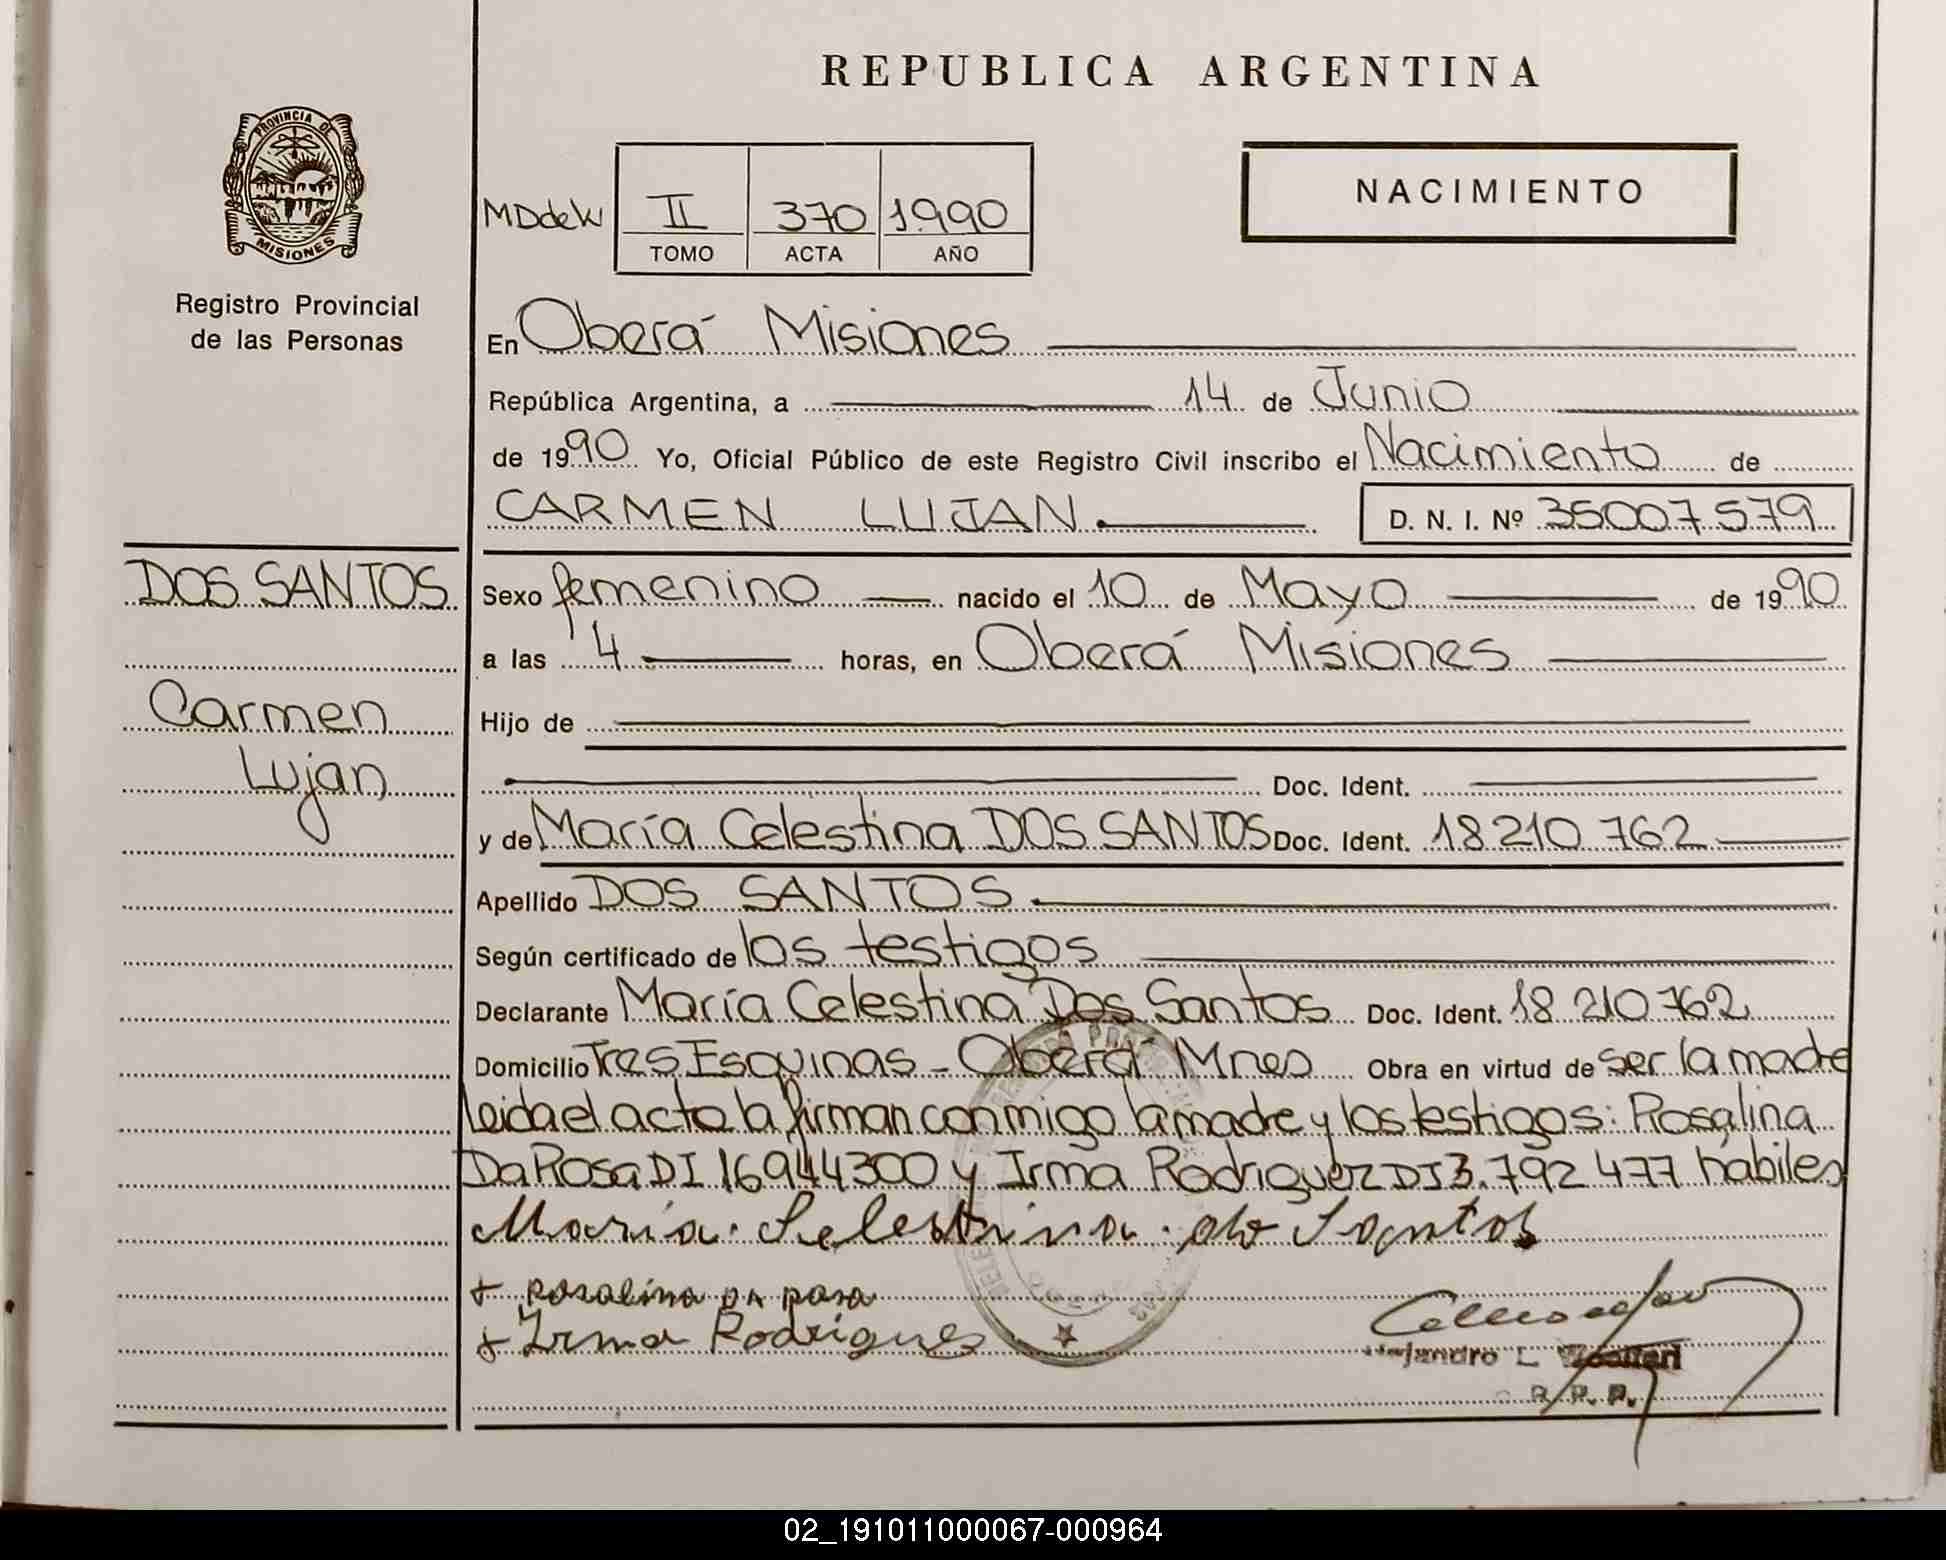 REPUBLICA ARGENTINA
PROVINCIA DE
MISIONES
Registro Provincial
de las Personas
II 370 1990
TOMO ACTA AÑO
NACIMIENTO
En Oberá Misiones
República Argentina, a 14 de Junio
de 1990 Yo, Oficial Público de este Registro Civil inscribo el Nacimiento de
CARMEN LUJAN D. N. I. Nº 35007579
DOS SANTOS
Carmen
Lujan
Sexo femenino nacido el 10 de Mayo de 1990
a las 4 horas, en Oberá Misiones
Hijo de
Doc. Ident.
y de María Celestina DOS SANTOS Doc. Ident. 18210762
Apellido DOS SANTOS
Según certificado de los testigos
Declarante María Celestina Dos Santos Doc. Ident. 18 210 762
Domicilio Tres Esquinas - Oberá Mnes Obra en virtud de ser la madre
Leida el acta la firman conmigo la madre y los testigos: Rosalina
Da Rosa DI 16944300 y Irma Rodriguez DI 3.792 477 habiles
María Selestrina do Santos
+ Rosalina DA Rosa
+ Irma Rodrigues
Alejandro L.
R. P. P.
02_191011000067-000964